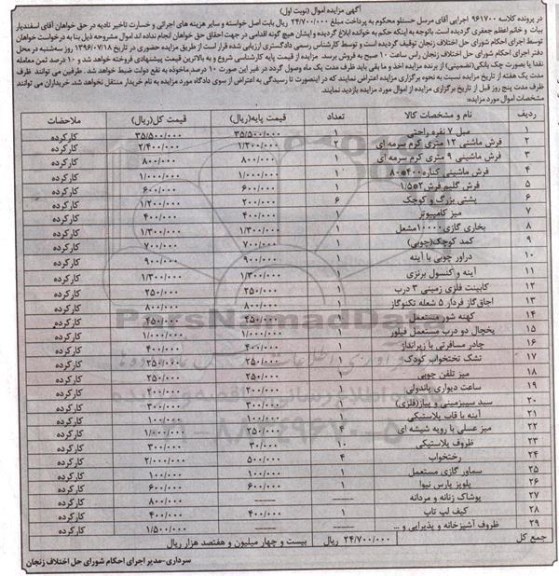 آگهی مزایده اموال (نوبت اول)
در پرونده کلاسه ۹۶۱۷۰۰ اجرایی آقای مرسل حسنلو محکوم به پرداخت مبلغ ۲۴/۷۰۰/۰۰۰ ریال بابت اصل خواسته و سایر هزینه های اجرائی و خسارت تاخیر تادیه در حق خواهان آقای اسفندیار
بیات و خانم اعظم جعفری گردیده است. باتوجه به اینکه حکم به خوانده ابلاغ گردیده و ایشان هیچ گونه اقدامی در جهت احقاق حق خواهان انجام نداده اند اموال مشروحه ذیل بنا به درخواست خواهان
توسط اجرای احکام شورای حل اختلاف زنجان توقیف گردیده است و توسط کارشناس رسمی دادگستری ارزیابی شده قرار است از طریق مزایده حضوری در تاریخ ۱۳۹۶/۰۷/۱۸ روز سه‌شنبه در محل
دفتر اجرای احکام شورای حل اختلاف زنجان راس ساعت ۱۰ صبح به فروش برسد. مزایده از قیمت پایه کارشناسی شروع و به بالاترین قیمت پیشنهادی فروخته خواهد شد و ۱۰ درصد ثمن معامله
نقدا یا بصورت چک بانکی(تضمینی) از برنده مزایده اخذ و ما بقی باید ظرف مدت یک ماه وصول گردد در غیر این صورت ۱۰ درصد ماخوذه به نفع دولت ضبط خواهد شد. طرفین می توانند ظرف
مدت یک هفته از تاریخ مزایده نسبت به نحوه برگزاری مزایده اعتراض نمایند که در اینصورت تا رسیدگی به اعتراض از سوی دادگاه مورد مزایده به نام خریدار منتقل نخواهد شد. خریداران می توانند
ظرف مدت پنج روز قبل از تاریخ برگزاری مزایده از اموال مورد مزایده بازدید نمایند.
مشخصات اموال مورد مزایده
ردیف نام و مشخصات کالا تعداد قیمت پایه(ریال) قیمت کل(ریال) ملاحضات
۱ مبل ۷ نفره راحتی ۱ ۳۵/۵۰۰/۰۰۰ ۳۵/۵۰۰/۰۰۰ کارکرده
۲ فرش ماشنی ۱۲ متری کرم سرمه ای ۲ ۱/۲۰۰/۰۰۰ ۲/۴۰۰/۰۰۰ کارکرده
۳ فرش ماشینی ۹ متری کرم سرمه ای ۱ ۸۰۰/۰۰۰ ۸۰۰/۰۰۰ کارکرده
۴ فرش ماشینی کناره ۴۰۰*۸۰ ۱ ۱/۰۰۰/۰۰۰ ۱/۰۰۰/۰۰۰ کارکرده
۵ فرش گلیم فرش ۲*۱/۵ ۱ ۶۰۰/۰۰۰ ۶۰۰/۰۰۰ کارکرده
۶ پشتی بزرگ و کوچک ۶ ۲۰۰/۰۰۰ ۱/۲۰۰/۰۰۰ کارکرده
۷ میز کامپیوتر ۱ ۴۰۰/۰۰۰ ۴۰۰/۰۰۰ کارکرده
۸ بخاری گازی ۱۰۰۰۰مشعل ۱ ۱/۳۰۰/۰۰۰ ۱/۳۰۰/۰۰۰ کارکرده
۹ کمد کوچک(چوبی) ۱ ۷۰۰/۰۰۰ ۷۰۰/۰۰۰ کارکرده
۱۰ دراور چوبی با آینه ۱ ۹۰۰/۰۰۰ ۹۰۰/۰۰۰ کارکرده
۱۱ آینه و کنسول برنزی ۱ ۱/۳۰۰/۰۰۰ ۱/۳۰۰/۰۰۰ کارکرده
۱۲ کابینت فلزی زمینی ۳ درب ۱ ۲۵۰/۰۰۰ ۲۵۰/۰۰۰ کارکرده
۱۳ اجاق‌گاز فردار ۵ شعله تکنوگاز ۱ ۸۰۰/۰۰۰ ۸۰۰/۰۰۰ کارکرده
۱۴ کهنه شور مستعمل ۱ ۴۵۰/۰۰۰ کارکرده
۱۵ یخچال دو درب مستعمل فیلور ۱ ۱/۰۰۰/۰۰۰ ۱/۰۰۰/۰۰۰ کارکرده
۱۶ چادر مسافرتی با زیرانداز ۱ ۴۰۰/۰۰۰ ۴۰۰/۰۰۰ کارکرده
۱۷ تشک تختخواب کودک ۱ ۲۵۰/۰۰۰ ۲۵۰/۰۰۰ کارکرده
۱۸ میز تلفن چوبی ۱ ۲۵۰/۰۰۰ ۲۵۰/۰۰۰ کارکرده
۱۹ ساعت دیواری پاندولی ۱ ۲۰۰/۰۰۰ ۲۰۰/۰۰۰ کارکرده
۲۰ سبد سیب‌زمینی و پیاز(فلزی) ۱ ۳۰۰/۰۰۰ ۳۰۰/۰۰۰ کارکرده
۲۱ آینه با قاب پلاستیکی ۱ ۱۰۰/۰۰۰ ۱۰۰/۰۰۰ کارکرده
۲۲ میز عسلی با رویه شیشه ای ۴ ۲۵۰/۰۰۰ کارکرده
۲۳ ظروف پلاستیکی ۱۰ ۳۰/۰۰۰ ۳۰۰/۰۰۰ کارکرده
۲۴ رختخواب ۴ ۵۰۰/۰۰۰ ۲/۰۰۰/۰۰۰ کارکرده
۲۵ سماور گازی مستعمل ۱ ۱۰۰/۰۰۰ ۱۰۰/۰۰۰ کارکرده
۲۶ پلوپز پارس نیوا ۱ ۶۰۰/۰۰۰ ۶۰۰/۰۰۰ کارکرده
۲۷ پوشاک زنانه و مردانه —— —— ۸۰۰/۰۰۰ کارکرده
۲۸ کیف لپ تاپ ۱ ۴۰۰/۰۰۰ ۴۰۰/۰۰۰ کارکرده
۲۹ ظروف آشپزخانه و پذیرایی و ... —— —— ۱/۵۰۰/۰۰۰ کارکرده
جمع کل ۲۴/۷۰۰/۰۰۰ ریال بیست و چهار میلیون و هفتصد هزار ریال
سرداری-مدیر اجرای احکام شورای حل اختلاف زنجان